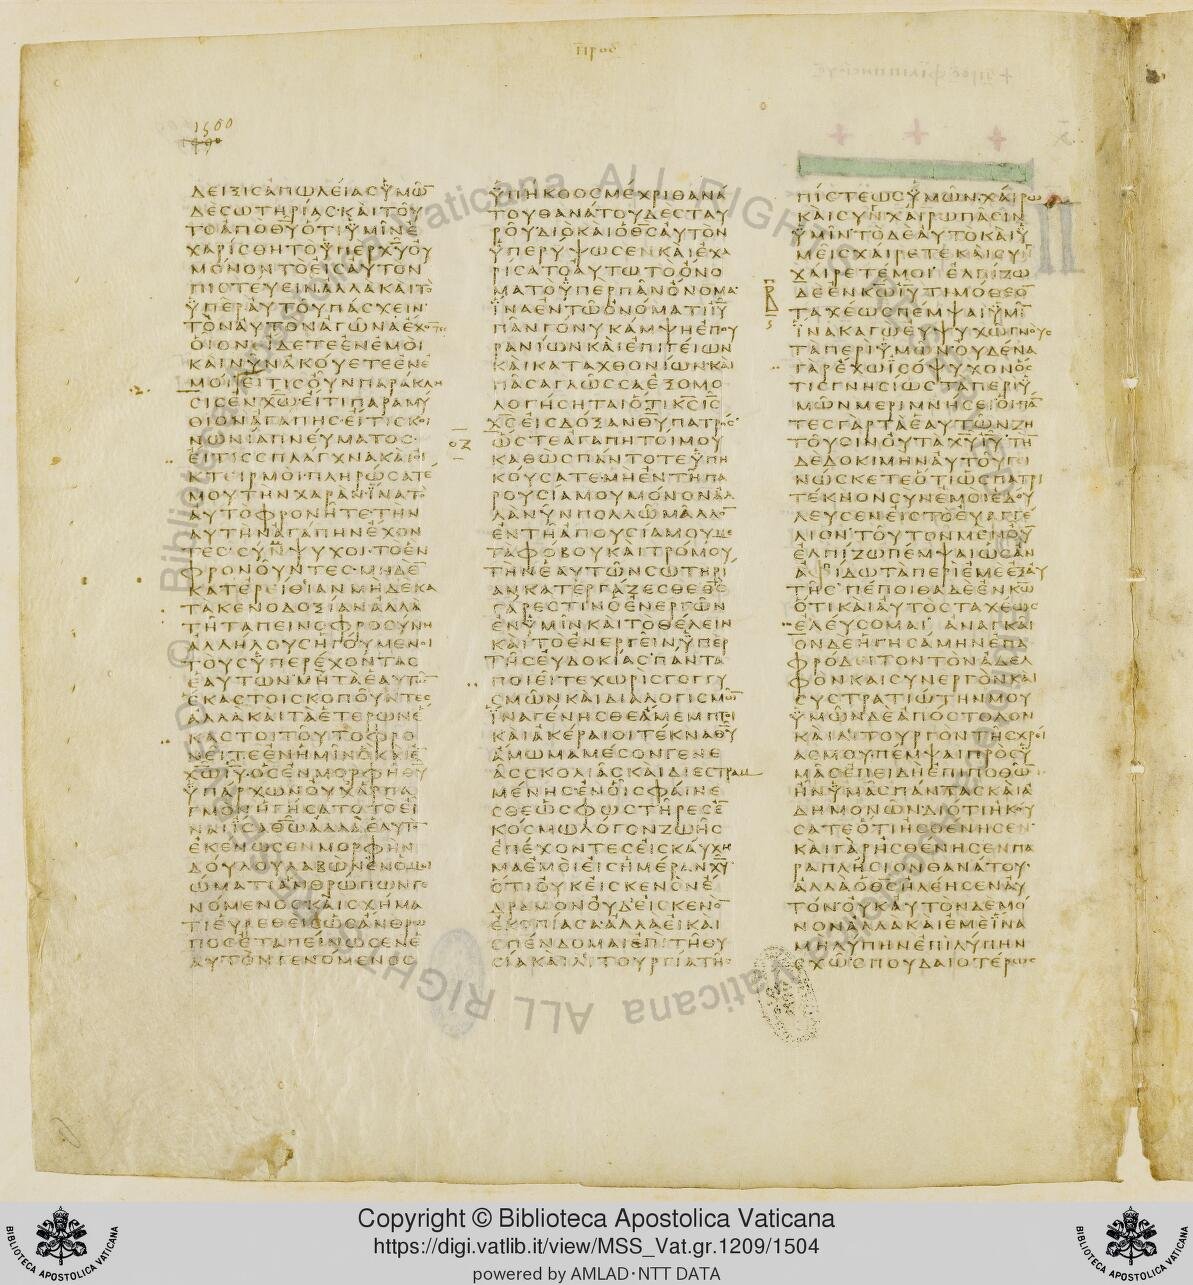 Προσ
1500
ΔΕΙΞΙϹΑΠΩΛΕΙΑϹΥΜΩ̅
ΔΕϹΩΤΗΡΙΑϹ·ΚΑΙΤΟΥ
ΤΟΑΠΟΘ̅Υ̅ΟΤΙΥΜΙΝΕ
ΧΑΡΙϹΘΗΤΟΥΠΕΡΧ̅Υ̅ΟΥ
ΜΟΝΟΝΤΟΕΙϹΑΥΤΟΝ
ΠΙϹΤΕΥΕΙΝΑΛΛΑΚΑΙΤΟ
ΥΠΕΡΑΥΤΟΥΠΑϹΧΕΙΝ·
ΤΟΝΑΥΤΟΝΑΓΩΝΑΕΧΟΤΕϹ
ΟΙΟΝΕΙΔΕΤΕΕΝΕΜΟΙ
ΚΑΙΝΥΝΑΚΟΥΕΤΕΕΝΕ
ΜΟΙ·ΕΙΤΙϹΟΥΝΠΑΡΑΚΛΗ
ϹΙϹΕΝΧ̅Ω̅·ΕΙΤΙΠΑΡΑΜΥ
ΘΙΟΝΑΓΑΠΗϹ·ΕΙΤΙϹΚΟΙ
ΝΩΝΙΑΠΝΕΥΜΑΤΟϹ·
ΕΙΤΙϹϹΠΛΑΓΧΝΑΚΑΙΟΙ
ΚΤΕΙΡΜΟΙ·ΠΛΗΡΩϹΑΤΕ
ΜΟΥΤΗΝΧΑΡΑΝΙΝΑΤΟ
ΑΥΤΟΦΡΟΝΗΤΕ·ΤΗΝ
ΑΥΤΗΝΑΓΑΠΗΝΕΧΟΝ
ΤΕϹ·ϹΥΝΨΥΧΟΙ·ΤΟΕΝ
ΦΡΟΝΟΥΝΤΕϹ·ΜΗΔΕ̅
ΚΑΤΕΡΕΙΘΙΑΝΜΗΔΕΚΑ
ΤΑΚΕΝΟΔΟΞΙΑΝΑΛΛΑ
ΤΗΤΑΠΕΙΝΟΦΡΟϹΥΝΗ
ΑΛΛΗΛΟΥϹΗΓΟΥΜΕΝΟΙ
ΤΟΥϹΥΠΕΡΕΧΟΝΤΑϹ
ΕΑΥΤΩΝΜΗΤΑΕΑΥΤΩ̅
ΕΚΑϹΤΟΙϹΚΟΠΟΥΝΤΕϹ
ΑΛΛΑΚΑΙΤΑΕΤΕΡΩΝΕ
ΚΑϹΤΟΙΤΟΥΤΟΦΡΟ
ΝΕΙΤΕΕΝΗΜΙΝΟΚΑΙΕ̅
Χ̅Ω̅Ι̅Υ̅·ΟϹΕΝΜΟΡΦΗΘ̅Υ̅
ΥΠΑΡΧΩΝΟΥΧΑΡΠΑ
ΓΜΟΝΗΓΗϹΑΤΟΤΟΕΙ
ΝΑΙΙϹΑΘ̅Ω̅ΑΛΛΑΕΑΥΤΟ̅
ΕΚΕΝΩϹΕΝΜΟΡΦΗΝ
ΔΟΥΛΟΥΛΑΒΩΝΕΝΟΜΟΙ
ΩΜΑΤΙΑΝΘΡΩΠΩΝΓΕ
ΝΟΜΕΝΟϹΚΑΙϹΧΗΜΑ
ΤΙΕΥΡΕΘΕΙϹΩϹΑΝΘΡΩ
ΠΟϹΕΤΑΠΕΙΝΩϹΕΝΕ
ΑΥΤΟΝΓΕΝΟΜΕΝΟϹ
ΟΖ
ΥΠΗΚΟΟϹΜΕΧΡΙΘΑΝΑ
ΤΟΥΘΑΝΑΤΟΥΔΕϹΤΑΥ
ΡΟΥΔΙΟΚΑΙΟΘ̅Ϲ̅ΑΥΤΟΝ
ΥΠΕΡΥΨΩϹΕΝΚΑΙΕΧΑ
ΡΙϹΑΤΟΑΥΤΩΤΟΟΝΟ
ΜΑΤΟΥΠΕΡΠΑΝΟΝΟΜΑ·
ΙΝΑΕΝΤΩΟΝΟΜΑΤΙΙ̅Υ̅
ΠΑΝΓΟΝΥΚΑΜΨΗΕΠΟΥ
ΡΑΝΙΩΝΚΑΙΕΠΙΓΕΙΩΝ
ΚΑΙΚΑΤΑΧΘΟΝΙΩΝ·ΚΑΙ
ΠΑϹΑΓΛΩϹϹΑΕΞΟΜΟ
ΛΟΓΗϹΗΤΑΙΟΤΙΚ̅Ϲ̅Ι̅Ϲ̅
Χ̅Ϲ̅ΕΙϹΔΟΞΑΝΘ̅Υ̅ΠΑΤΡΟϹ·
ΩϹΤΕΑΓΑΠΗΤΟΙΜΟΥ
ΚΑΘΩϹΠΑΝΤΟΤΕΥΠΗ
ΚΟΥϹΑΤΕ·ΜΗΕΝΤΗΠΑ
ΡΟΥϹΙΑΜΟΥΜΟΝΟΝΑΛ
ΛΑΝΥΝΠΟΛΛΩΜΑΛΛΟ̅
ΕΝΤΗΑΠΟΥϹΙΑΜΟΥΜΕ
ΤΑΦΟΒΟΥΚΑΙΤΡΟΜΟΥ
ΤΗΝΕΑΥΤΩΝϹΩΤΗΡΙ
ΑΝΚΑΤΕΡΓΑΖΕϹΘΕΘ̅Ϲ̅
ΓΑΡΕϹΤΙΝΟΕΝΕΡΓΩΝ
ΕΝΥΜΙΝΚΑΙΤΟΘΕΛΕΙΝ
ΚΑΙΤΟΕΝΕΡΓΕΙΝ·ΥΠΕΡ
ΤΗϹΕΥΔΟΚΙΑϹ·ΠΑΝΤΑ
ΠΟΙΕΙΤΕΧΩΡΙϹΓΟΓΓΥ
ϹΜΩΝΚΑΙΔΙΑΛΟΓΙϹΜΩ̅
ΙΝΑΓΕΝΗϹΘΕΑΜΕΜΠΤΟΙ
ΚΑΙΑΚΕΡΑΙΟΙΤΕΚΝΑΘ̅Υ̅
ΑΜΩΜΑΜΕϹΟΝΓΕΝΕ
ΑϹϹΚΟΛΙΑϹΚΑΙΔΙΕϹΤΡΑΜ
ΜΕΝΗϹΕΝΟΙϹΦΑΙΝΕ
ϹΘΕΩϹΦΩϹΤΗΡΕϹΕ̅
ΚΟϹΜΩΛΟΓΟΝΖΩΗϹ
ΕΠΕΧΟΝΤΕϹΕΙϹΚΑΥΧΗ
ΜΑΕΜΟΙΕΙϹΗΜΕΡΑΝΧ̅Υ̅
ΟΤΙΟΥΚΕΙϹΚΕΝΟΝΕ
ΔΡΑΜΟΝΟΥΔΕΙϹΚΕΝΟ̅
ΕΚΟΠΙΑϹΑ·ΑΛΛΑΕΙΚΑΙ
ϹΠΕΝΔΟΜΑΙΕΠΙΤΗΘΥ
ϹΙΑΚΑΙΛΙΤΟΥΡΓΙΑΤΗϹ
Β
ΠΙϹΤΕΩϹΥΜΩΝ·ΧΑΙΡΩ
ΚΑΙϹΥΝΧΑΙΡΩΠΑϹΙΝ
ΥΜΙΝΤΟΔΕΑΥΤΟΚΑΙΥ
ΜΕΙϹΧΑΙΡΕΤΕΚΑΙϹΥΝ
ΧΑΙΡΕΤΕΜΟΙ·ΕΛΠΙΖΩ
ΔΕΕΝΚ̅Ω̅Ι̅Υ̅ΤΙΜΟΘΕΟ̅
ΤΑΧΕΩϹΠΕΜΨΑΙΥΜΙ̅
ΙΝΑΚΑΓΩΕΥΨΥΧΩΓΝΟΥϹ
ΤΑΠΕΡΙΥΜΩΝΟΥΔΕΝΑ
ΓΑΡΕΧΩΙϹΟΨΥΧΟΝΟϹ
ΤΙϹΓΝΗϹΙΩϹΤΑΠΕΡΙΥ
ΜΩΝΜΕΡΙΜΝΗϹΕΙΟΙΠΑ̅
ΤΕϹΓΑΡΤΑΕΑΥΤΩΝΖΗ
ΤΟΥϹΙΝΟΥΤΑΧ̅Υ̅Ι̅Υ̅·ΤΗ̅
ΔΕΔΟΚΙΜΗΝΑΥΤΟΥΓΕΙ
ΝΩϹΚΕΤΕΟΤΙΩϹΠΑΤΡΙ
ΤΕΚΝΟΝϹΥΝΕΜΟΙΕΔΟΥ
ΛΕΥϹΕΝΕΙϹΤΟΕΥΑΓΓΕ
ΛΙΟΝΤΟΥΤΟΝΜΕΝΟΥ̅
ΕΛΠΙΖΩΠΕΜΨΑΙΩϹΑΝ
ΑΦΙΔΩΤΑΠΕΡΙΕΜΕΕΞΑΥ
ΤΗϹ·ΠΕΠΟΙΘΑΔΕΕΝΚ̅Ω̅
ΟΤΙΚΑΙΑΥΤΟϹΤΑΧΕΩϹ
ΕΛΕΥϹΟΜΑΙ·ΑΝΑΓΚΑΙ
ΟΝΔΕΗΓΗϹΑΜΗΝΕΠΑ
ΦΡΟΔΕΙΤΟΝΤΟΝΑΔΕΛ
ΦΟΝΚΑΙϹΥΝΕΡΓΟΝΚΑΙ
ϹΥϹΤΡΑΤΙΩΤΗΝΜΟΥ
ΥΜΩΝΔΕΑΠΟϹΤΟΛΟΝ
ΚΑΙΛΙΤΟΥΡΓΟΝΤΗϹΧΡΕΙ
ΑϹΜΟΥ·ΠΕΜΨΑΙΠΡΟϹΥ
ΜΑϹΕΠΕΙΔΗΕΠΙΠΟΘΩ̅
ΗΝΥΜΑϹΠΑΝΤΑϹΚΑΙΑ
ΔΗΜΟΝΩΝ·ΔΙΟΤΙΗΚΟΥ
ϹΑΤΕΟΤΙΗϹΘΕΝΗϹΕΝ·
ΚΑΙΓΑΡΗϹΘΕΝΗϹΕΝΠΑ
ΡΑΠΛΗϹΙΟΝΘΑΝΑΤΟΥ·
ΑΛΛΑΟΘ̅Ϲ̅ΗΛΕΗϹΕΝΑΥ
ΤΟΝ·ΟΥΚΑΥΤΟΝΔΕΜΟ
ΝΟΝΑΛΛΑΚΑΙΕΜΕΙΝΑ
ΜΗΛΥΠΗΝΕΠΙΛΥΠΗΝ
ϹΧΩ·ϹΠΟΥΔΑΙΟΤΕΡΩϹ
Copyright © Biblioteca Apostolica Vaticana
https://digi.vatlib.it/view/MSS_Vat.gr.1209/1504
powered by AMLAD·NTT DATA
BIBLIOTECA APOSTOLICA VATICANA
BIBLIOTECA APOSTOLICA VATICANA